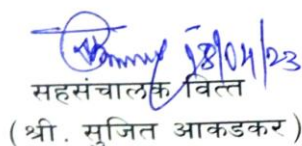 18/04/23
सहसंचालक वित्त
(श्री. सुजित आकडकर)